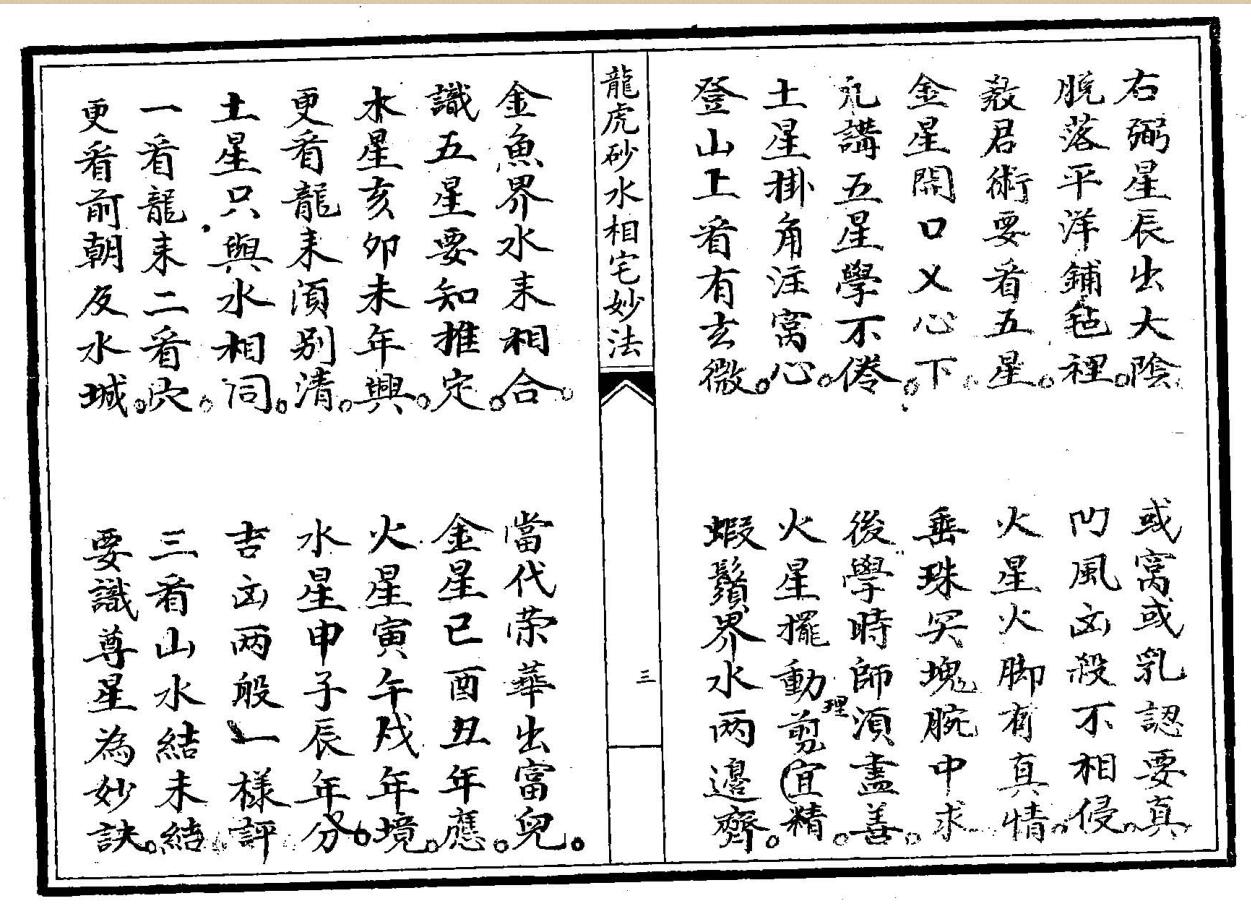 右弼星辰出大陰。或窩或乳認要真
脫落平洋鋪毡裡。凹風凶殺不相侵。
教君術要看五星。火星火脚有真情。
金星開口乂心下。垂珠突塊腕中求
凡講五星學不倦。後學時師須盡善。
土星掛角注窩心。火星擺動剪理宜精
登山上看有玄微。蝦鬚界水两邊齊。
龍虎砂水相宅妙法
三
金魚界水来相合。當代荣華出富皃。
識五星要知推定。金星巳酉丑年應。
木星亥卯未年興。火星寅午戌年境。
更看龍来須别清。水星申子辰年分。
土星只與水相同。吉凶两般一樣評。
一看龍来二看穴。三看山水結未結。
更看前朝及水城。要識尊星為妙訣。